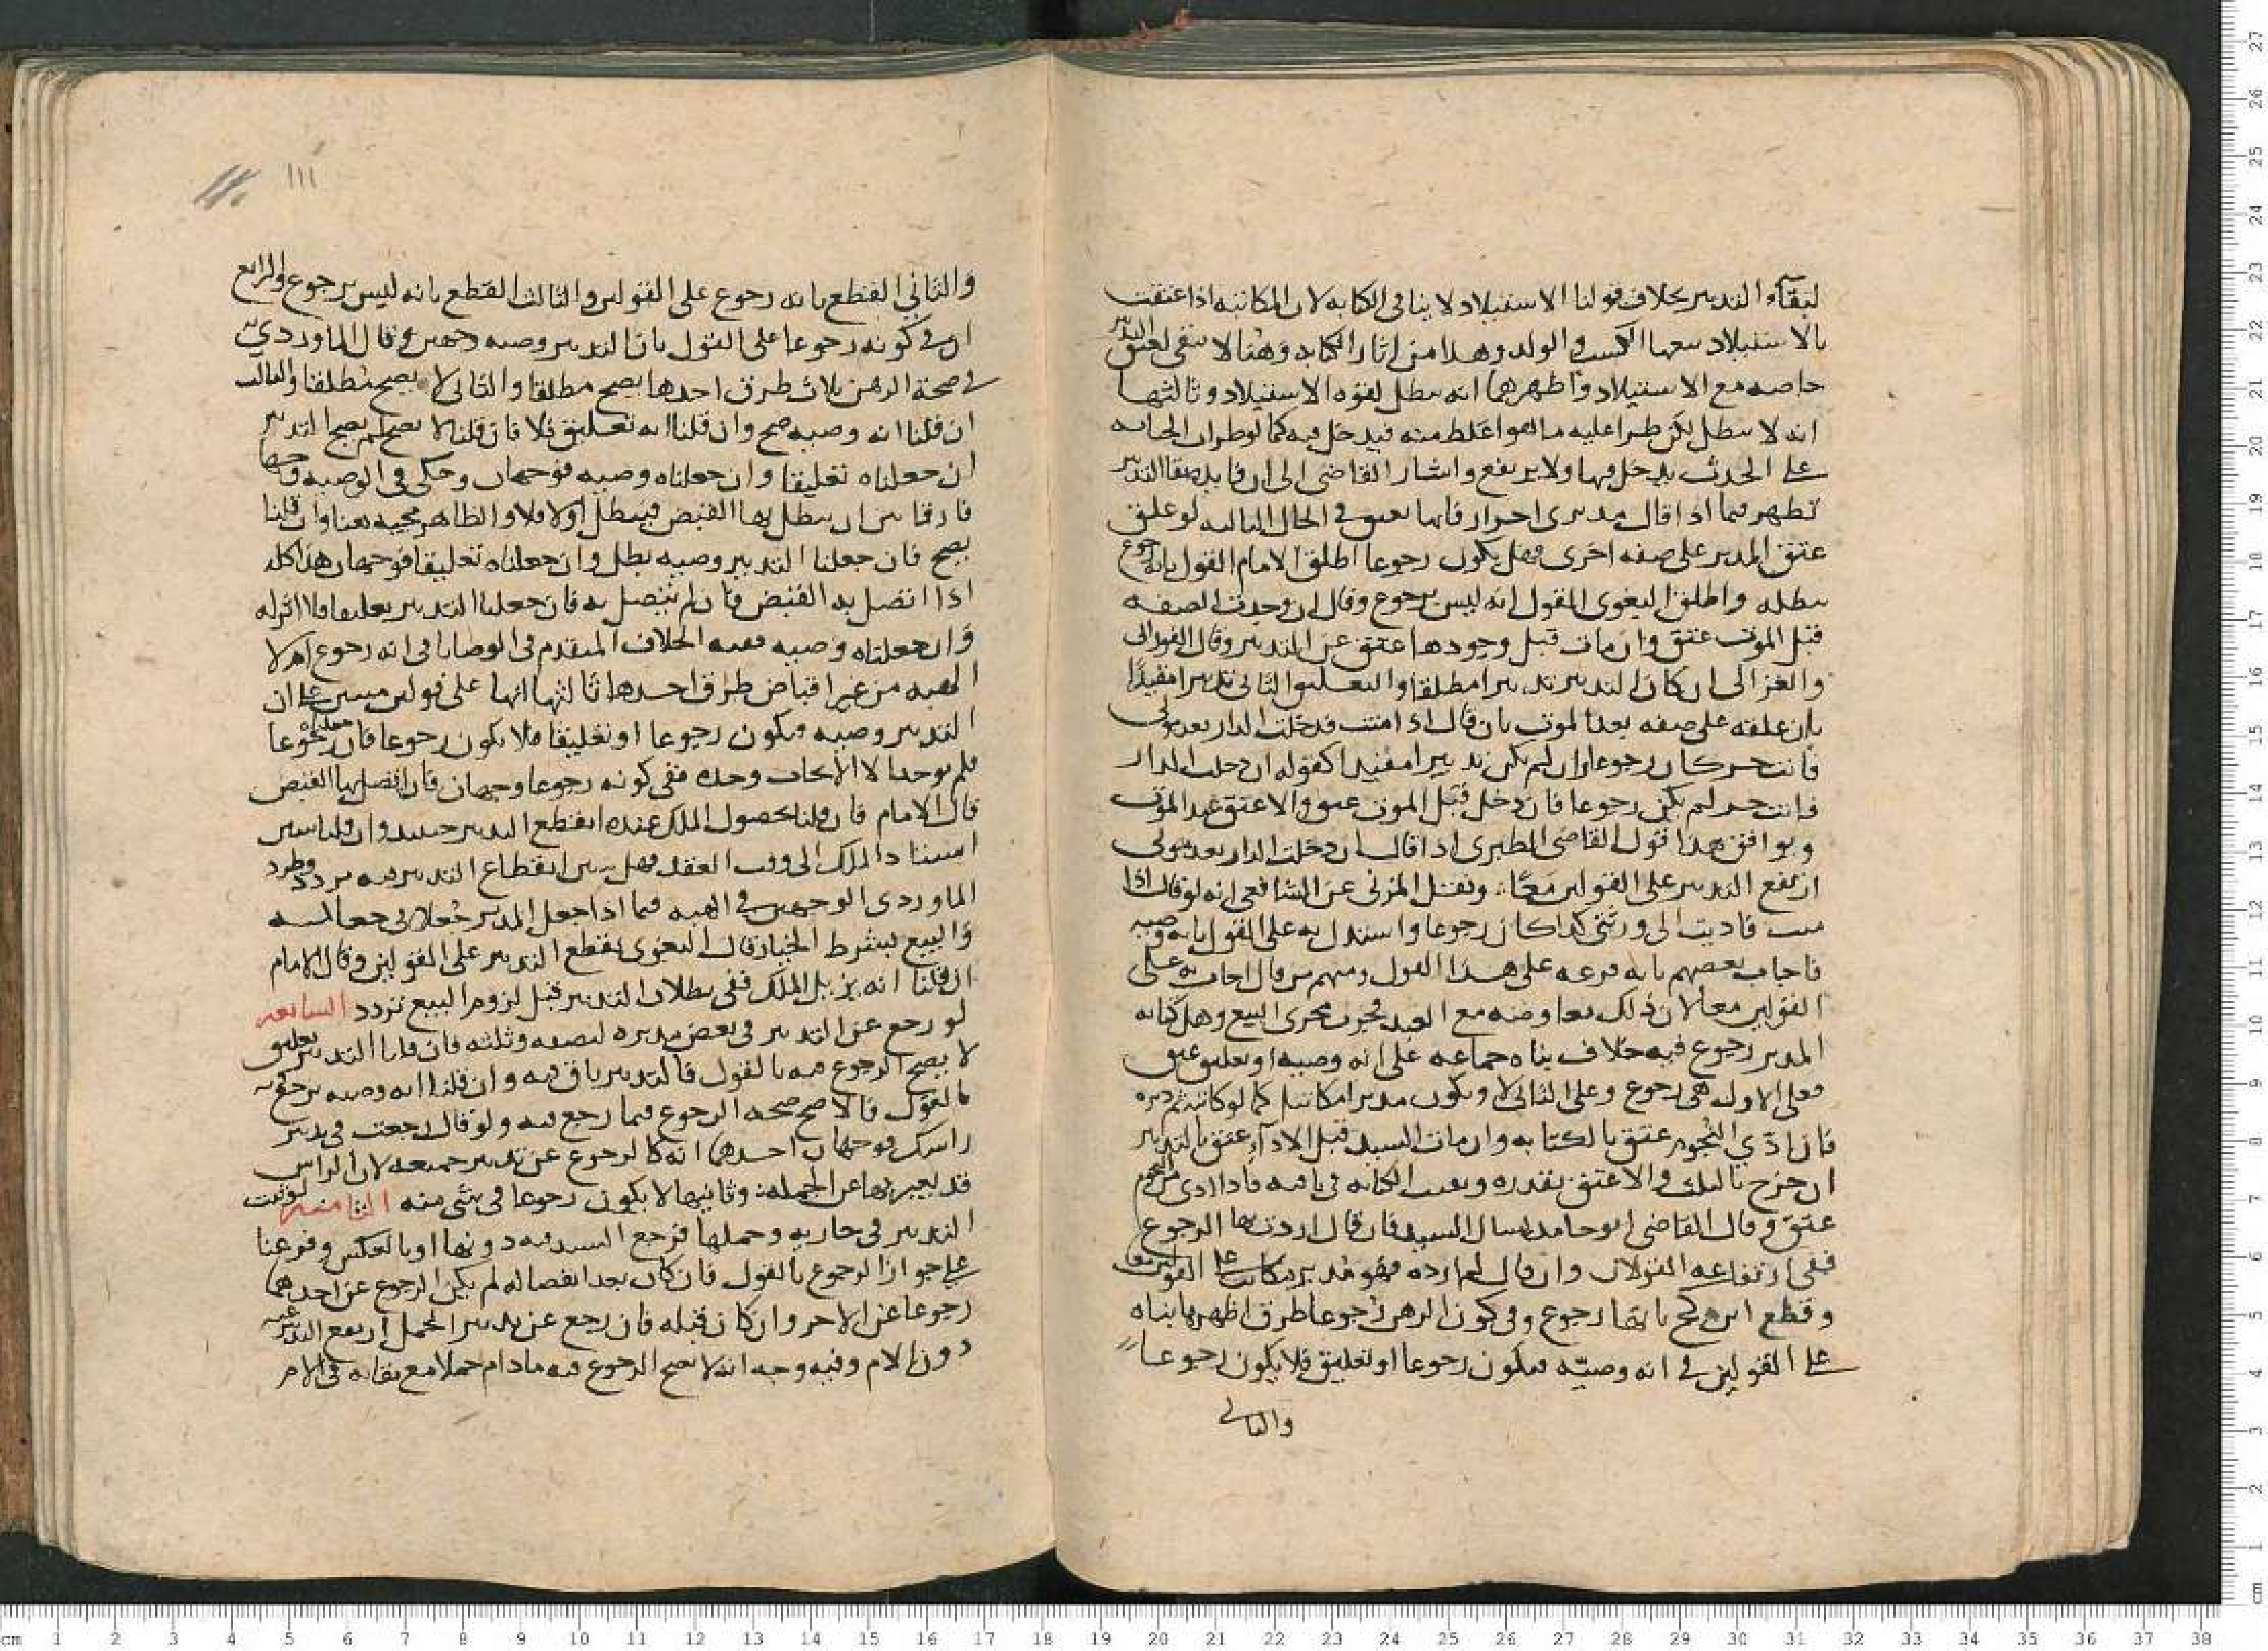 لبقاء التدبير بخلاف قولنا الاستيلاد لا ينافي الكتابة لان المكاتبة اذا عتقت
بالاستيلاد تبعها الكسب والولد وهذا من اثار الكتابة وهنا لا يبقى لعتق التدبير
خاصة مع الاستيلاد واظهرهما انه يبطل لقوة الاستيلاد وثالثها
انه لا يبطل لكن طرا عليه ما هو اغلظ منه فيدخل فيه كما لو طران الجنابة
على الحدث يدخل فيها ولا يرتفع واشار القاضي الى ان فايدة بقا التدبير
تظهر فيما اذا قال مدبري احرار فانها تعتق في الحال الثالثة لو علق
عتق المدبر على صفة اخرى فهل يكون رجوعا اطلق الامام القول بانه رجوع
يبطله واطلق البغوي القول انه ليس برجوع وقال ان وجدت الصفة
قبل الموت عتق وان مات قبل وجودها عتق عن التدبير وقال الفوراني
والغزالي ان كان التدبير تدبيرا مطلقا والتعليق الثاني تدبيرا مقيدا
بان علقه على صفة بعد الموت بان قال اذا مت فدخلت الدار بعد موتي
فانت حر كان رجوعا وان لم يكن تدبيرا مقيدا كقوله ان دخلت الدار
فانت حر لم يكن رجوعا فان دخل قبل الموت عتق والا عتق عند الموت
ويوافق هذا قول القاضي الطبري اذا قال ان دخلت الدار بعد موتي
ارتفع التدبير على القولين معا ونقل المزني عن الشافعي انه لو قال اذا
مت فاديت الى ورثتي كذا كان رجوعا واستدل به على القول بانه وصية
فاجاب بعضهم بانه فرعه على هذا القول ومنهم من قال اجاب به على
القولين معا لان ذلك معاوضة مع العبد فجرت مجرى البيع وهل كتابة
المدبر رجوع فيه خلاف بناه جماعة على انه وصية او تعليق عتق
فعلى الاول هي رجوع وعلى الثاني لا ويكون مدبرا مكاتبا كما لو كاتبه ثم دبره
فان ادي النجوم عتق بالكتابة وان مات السيد قبل الاداء عتق بالتدبير
ان خرج من الثلث والا عتق بقدره وبقيت الكتابة في باقيه فاذا ادى النجم
عتق وقال القاضي ابو حامد يسال السيد فان قال اردت بها الرجوع
ففي ارتفاعه القولان وان قال لم ارده فهو مدبر مكاتب على القولين
وقطع ابن كج بانها رجوع وفي كون الرهن رجوعا طرق اظهرها بناه
على القولين في انه وصية فيكون رجوعا او تعليق فلا يكون رجوعا
والثاني
١١١
والثاني القطع بانه رجوع على القولين والثالث القطع بانه ليس برجوع والرابع
ان في كونه رجوعا على القول بان التدبير وصية وجهين وقال الماوردي
في صحة الرهن ثلاث طرق احدها يصح مطلقا والثاني لا يصح مطلقا والثالث
ان قلنا انه وصية صح وان قلنا انه تعليق فلا فان قلنا لا يصح لم يصح التدبير
ان جعلناه تعليقا وان جعلناه وصية فوجهان وحكى في الوصية وجها
فارقا بين ان يتصل بها القبض فيبطل اولا فلا والظاهر مجيه هنا وان قلنا
يصح فان جعلنا التدبير وصية بطل وان جعلناه تعليقا فوجهان هذا كله
اذا اتصل به القبض فان لم يتصل به فان جعلنا التدبير تعليقا فلا اثر له
وان جعلناه وصية ففيه الخلاف المتقدم في الوصايا في انه رجوع ام لا
الهبة من غير اقباض طرق احدها ثالثها انها على قولين مبنيين على ان
التدبير وصية فيكون رجوعا او تعليقا فلا يكون رجوعا فان جعلناه رجوعا
فلم يوجد الا الايجاب وحده ففي كونه رجوعا وجهان فان اتصل بها القبض
قال الامام فان قلنا بحصول الملك عنده انقطع التدبير حينئذ وان قلنا يتبين
استناد الملك الى وقت العقد فهل يتبين انقطاع التدبير فيه تردد وطرد
الماوردي الوجهين في الهبة فيما اذا جعل المدبر جعلا في جعالة
والبيع بشرط الخيار قال البغوي يقطع التدبير على القولين وقال الامام
ان قلنا انه يزيل الملك ففي بطلان التدبير قبل لزوم البيع تردد السابعة
لو رجع عن التدبير في بعض مدبره لنصفه وثلثه فان قلنا التدبير تعليق
لا يصح الرجوع فيه بالقول فالتدبير باق فيه وان قلنا انه وصية يرجع فيه
بالقول فالاصح صحة الرجوع فيما رجع فيه ولو قال رجعت في تدبير
راسك فوجهان احدهما انه كالرجوع عن تدبير جميعه لان الراس
قد يعبر بها عن الجملة وثانيهما لا يكون رجوعا في شي منه الثامنة لو ثبت
التدبير في جارية وحملها فرجع السيد فيه دونها او بالعكس وفرعنا
على جواز الرجوع بالقول فان كان بعد انفصاله لم يكن الرجوع عن احدهما
رجوعا عن الاخر وان كان قبله فان رجع عن تدبير الحمل ارتفع التدبير عنه
دون الام وفيه وجه انه لا يصح الرجوع فيه مادام حملا مع بقائه في الام